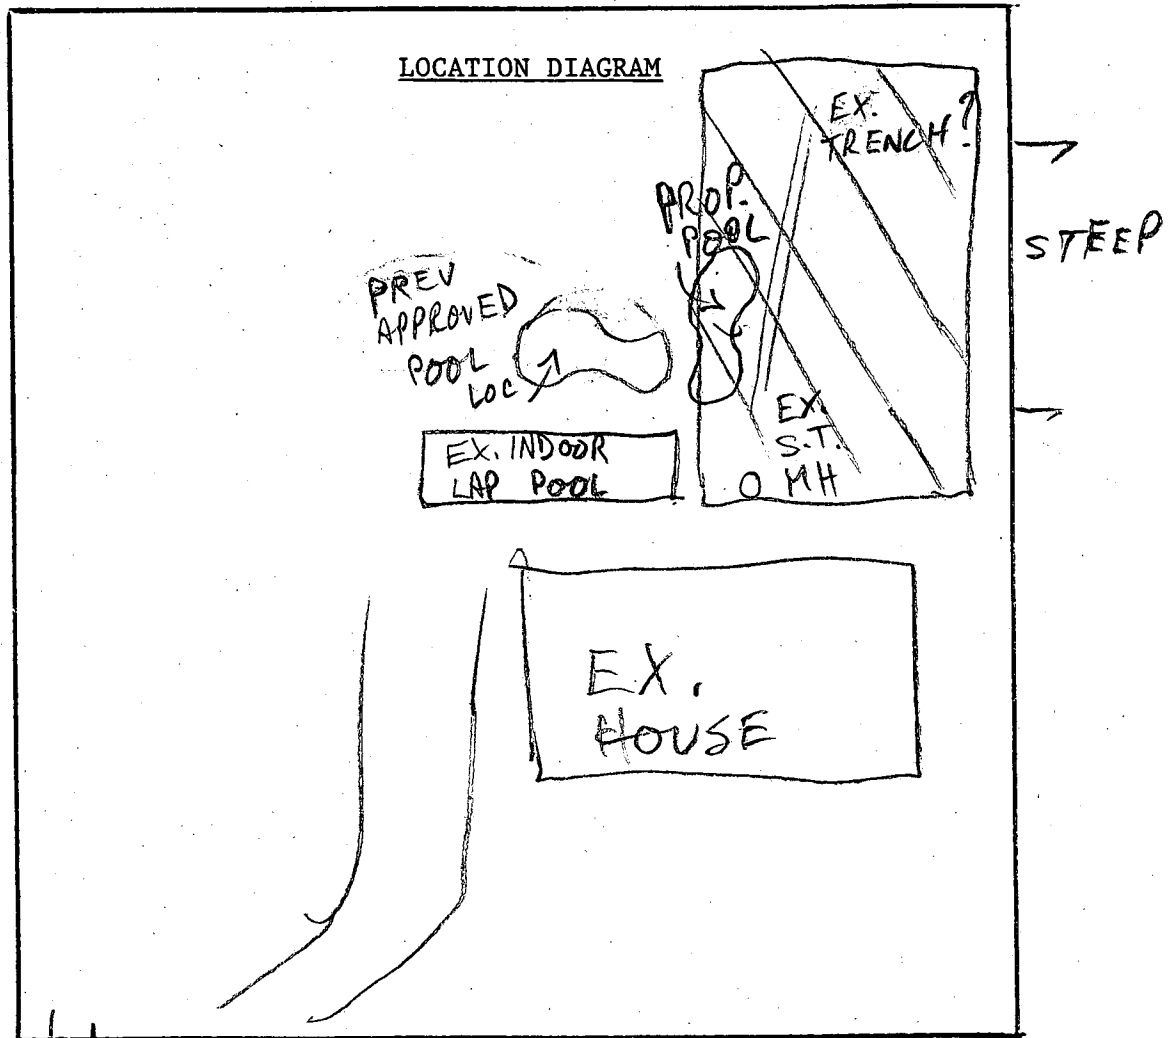 LOCATION DIAGRAM
EX.
TRENCH?
PROP.
POOL
STEEP
PREV
APPROVED
POOL
LOC
EX.
S.T.
MH
EX. INDOOR
LAP POOL
EX.
HOUSE